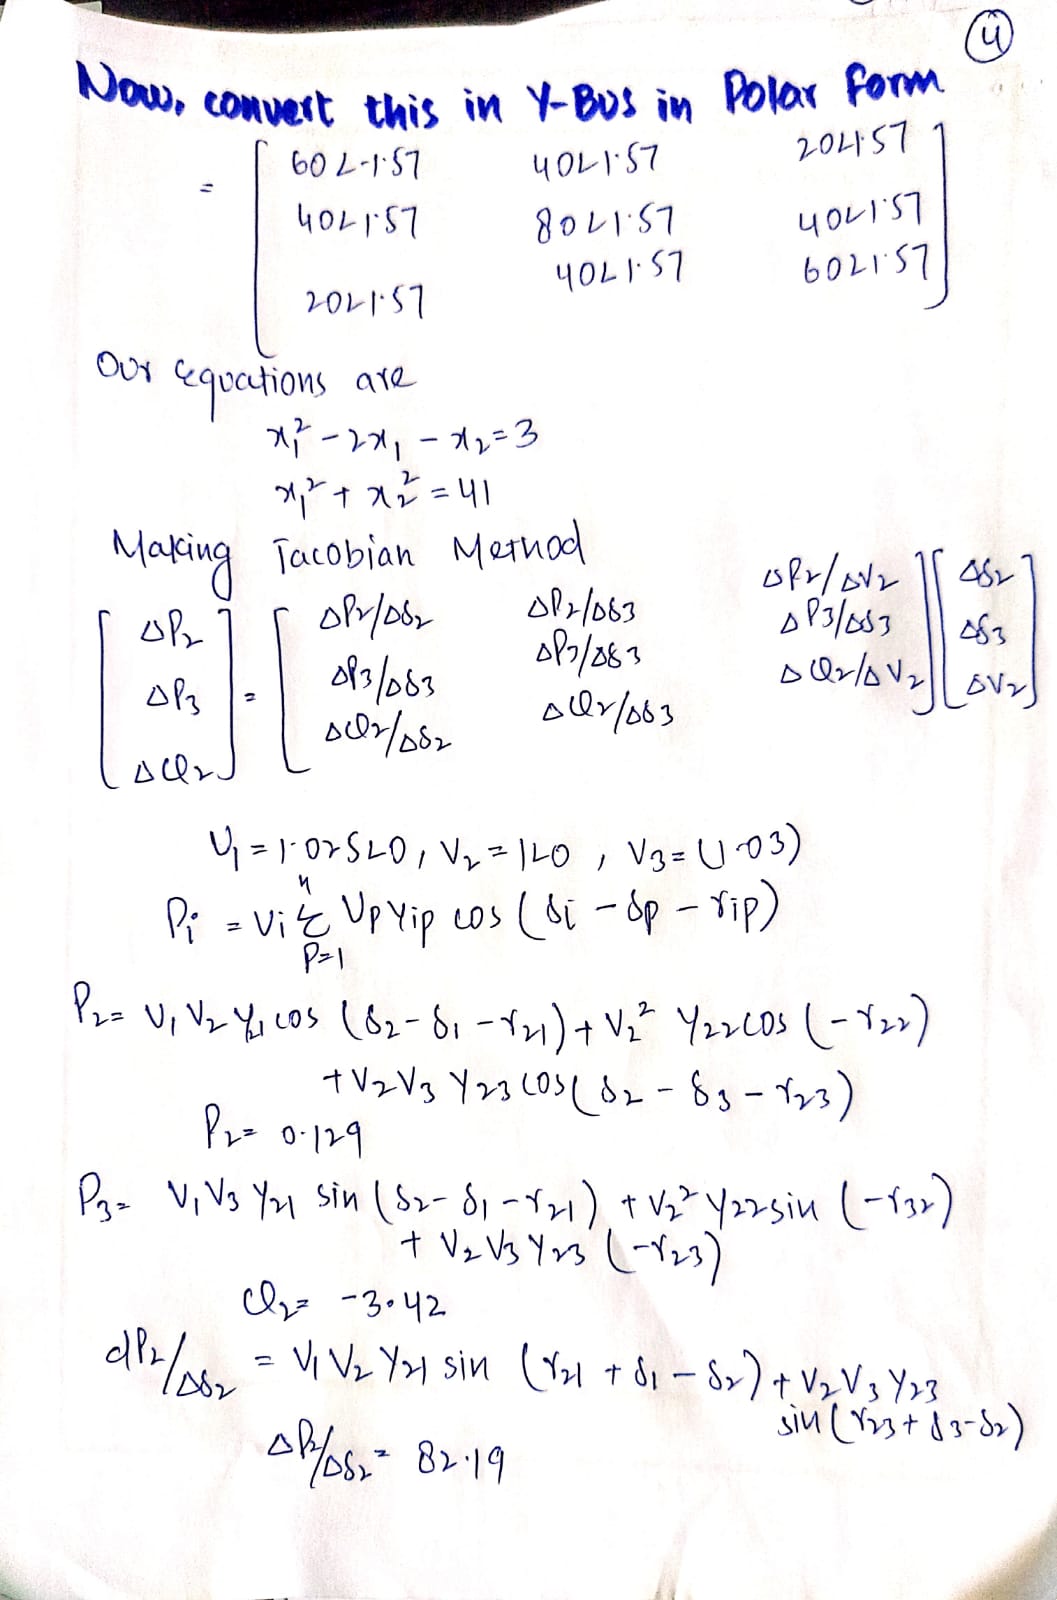 4
Now, convert this in Y-Bus in Polar form
= [ 60∠-1.57 40∠1.57 20∠1.57
40∠1.57 80∠1.57 40∠1.57
20∠1.57 40∠1.57 60∠1.57 ]
Our equations are
x₁² - 2x₁ - x₂ = 3
x₁² + x₂² = 41
Making Jacobian Method
[ ΔP₂ ] = [ ΔP₂/Δδ₂ ΔP₂/Δδ3 ΔP₂/ΔV₂ ] [ Δδ₂ ]
[ ΔP₃ ] [ ΔP3/Δδ3 ΔP3/Δδ3 ΔP3/Δδ3 ] [ Δδ3 ]
[ ΔQ₂ ] [ ΔQ₂/Δδ₂ ΔQ₂/Δδ3 ΔQ₂/ΔV₂ ] [ ΔV₂ ]
V₁ = 1.025∠0, V₂ = 1∠0, V3 = (1.03)
Pi = Vi Σ(P=1 to n) VpYip cos (δi - δp - γip)
P₂ = V₁ V₂ Y₂₁ cos (δ₂ - δ₁ - γ₂₁) + V₂² Y₂₂ cos (-γ₂₂)
+ V₂V₃ Y₂₃ cos( δ₂ - δ₃ - γ₂₃)
P₂ = 0.129
P₃ = V₁ V₃ Y₂₁ sin (δ₂ - δ₁ - γ₂₁) + V₂² Y₂₂ sin (-γ₃₂)
+ V₂ V₃ Y₂₃ (-γ₂₃)
Q₂ = -3.42
dP₂/Δδ₂ = V₁ V₂ Y₂₁ sin (γ₂₁ + δ₁ - δ₂) + V₂V₃ Y₂₃
sin (γ₂₃ + δ₃ - δ₂)
ΔP₂/Δδ₂ = 82.19